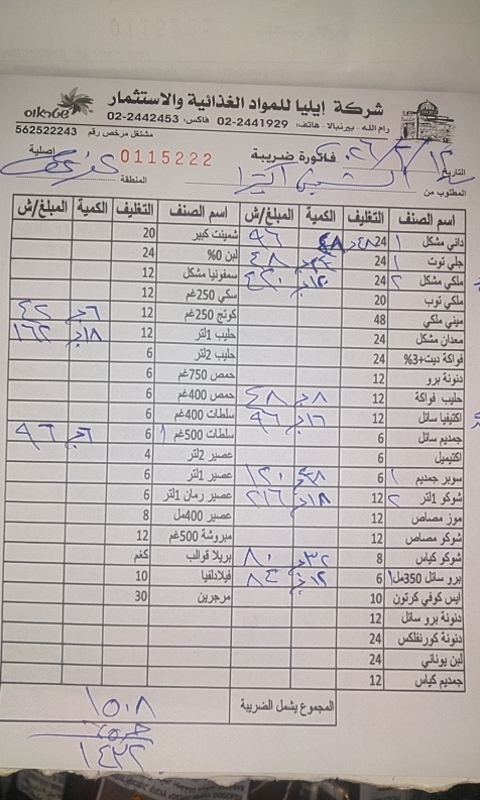 شركة إيليا للمواد الغذائية والاستثمار
رام الله - بيرنبالا - هاتف: 2441929-02 فاكس: 2442453-02
مشتغل مرخص رقم 562522243
فاتورة ضريبة 0115222 أصلية
التاريخ
المطلوب من المنطقة
اسم الصنف التغليف الكمية المبلغ/ش اسم الصنف التغليف الكمية المبلغ/ش
داني مشكل ١ 24 ٤٨ ٩٦ شمينت كبير 20
جلي توت ١ 24 ٤٨ لبن 0% 24
ملكي مشكل ٢ 24 سمفونيا مشكل 12
ملكي توب 20 سكي 250غم 12
ميني ملكي 48 كوتج 250غم 12 ٦ ٤٢
معدان مشكل 24 حليب 1لتر 12 ١٨ ١٦٢
فواكة ديت+3% 24 حليب 2لتر 6
دنونة برو 12 حمص 750غم 6
حليب فواكة 12 ٨ ٤٨ حمص 400غم 6
اكتيفيا سائل 12 ١٦ ٩٦ سلطات 400غم 6
جمديم سائل 6 سلطات 500غم ١ 6 ٦ ٩٦
اكتيميل 6 عصير 2لتر 4
سوبر جمديم ١ 6 ١٢٠ عصير 1لتر 6
شوكو 1لتر ٢ 12 ١٨ ٢١٦ عصير رمان 1لتر 6
موز مصاص 12 عصير 400مل 8
شوكو مصاص 12 مبروشة 500غم 12
شوكو كياس 8 ٣٢ ٨٠ بريلا قوالب كغم
برو سائل 350مل ١ 6 ١٢ ٨٤ فيلادلفيا 10
ايس كوفي كرتون 10 مرجرين 30
دنونة برو سائل 12
دنونة كورنفلكس 24
لبن يوناني 24
جمديم كياس 12
المجموع يشمل الضريبة ١٥٠٨
١٤٣٢